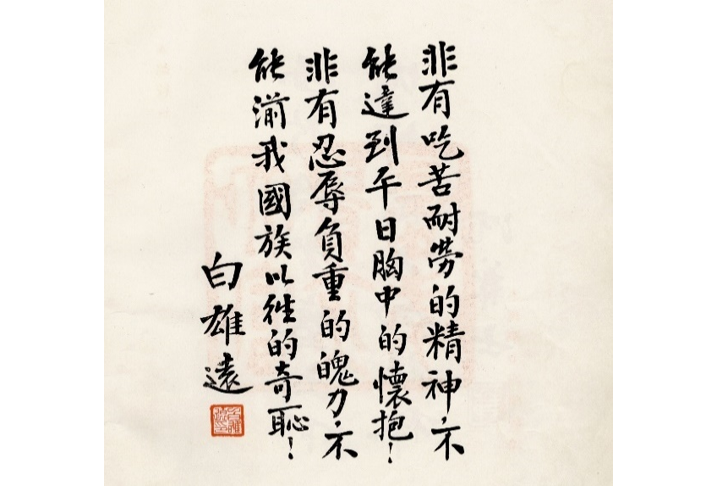 非有吃苦耐勞的精神，不
能達到平日胸中的懷抱！
非有忍辱負重的魄力，不
能湔我國族以往的奇恥！
白雄遠